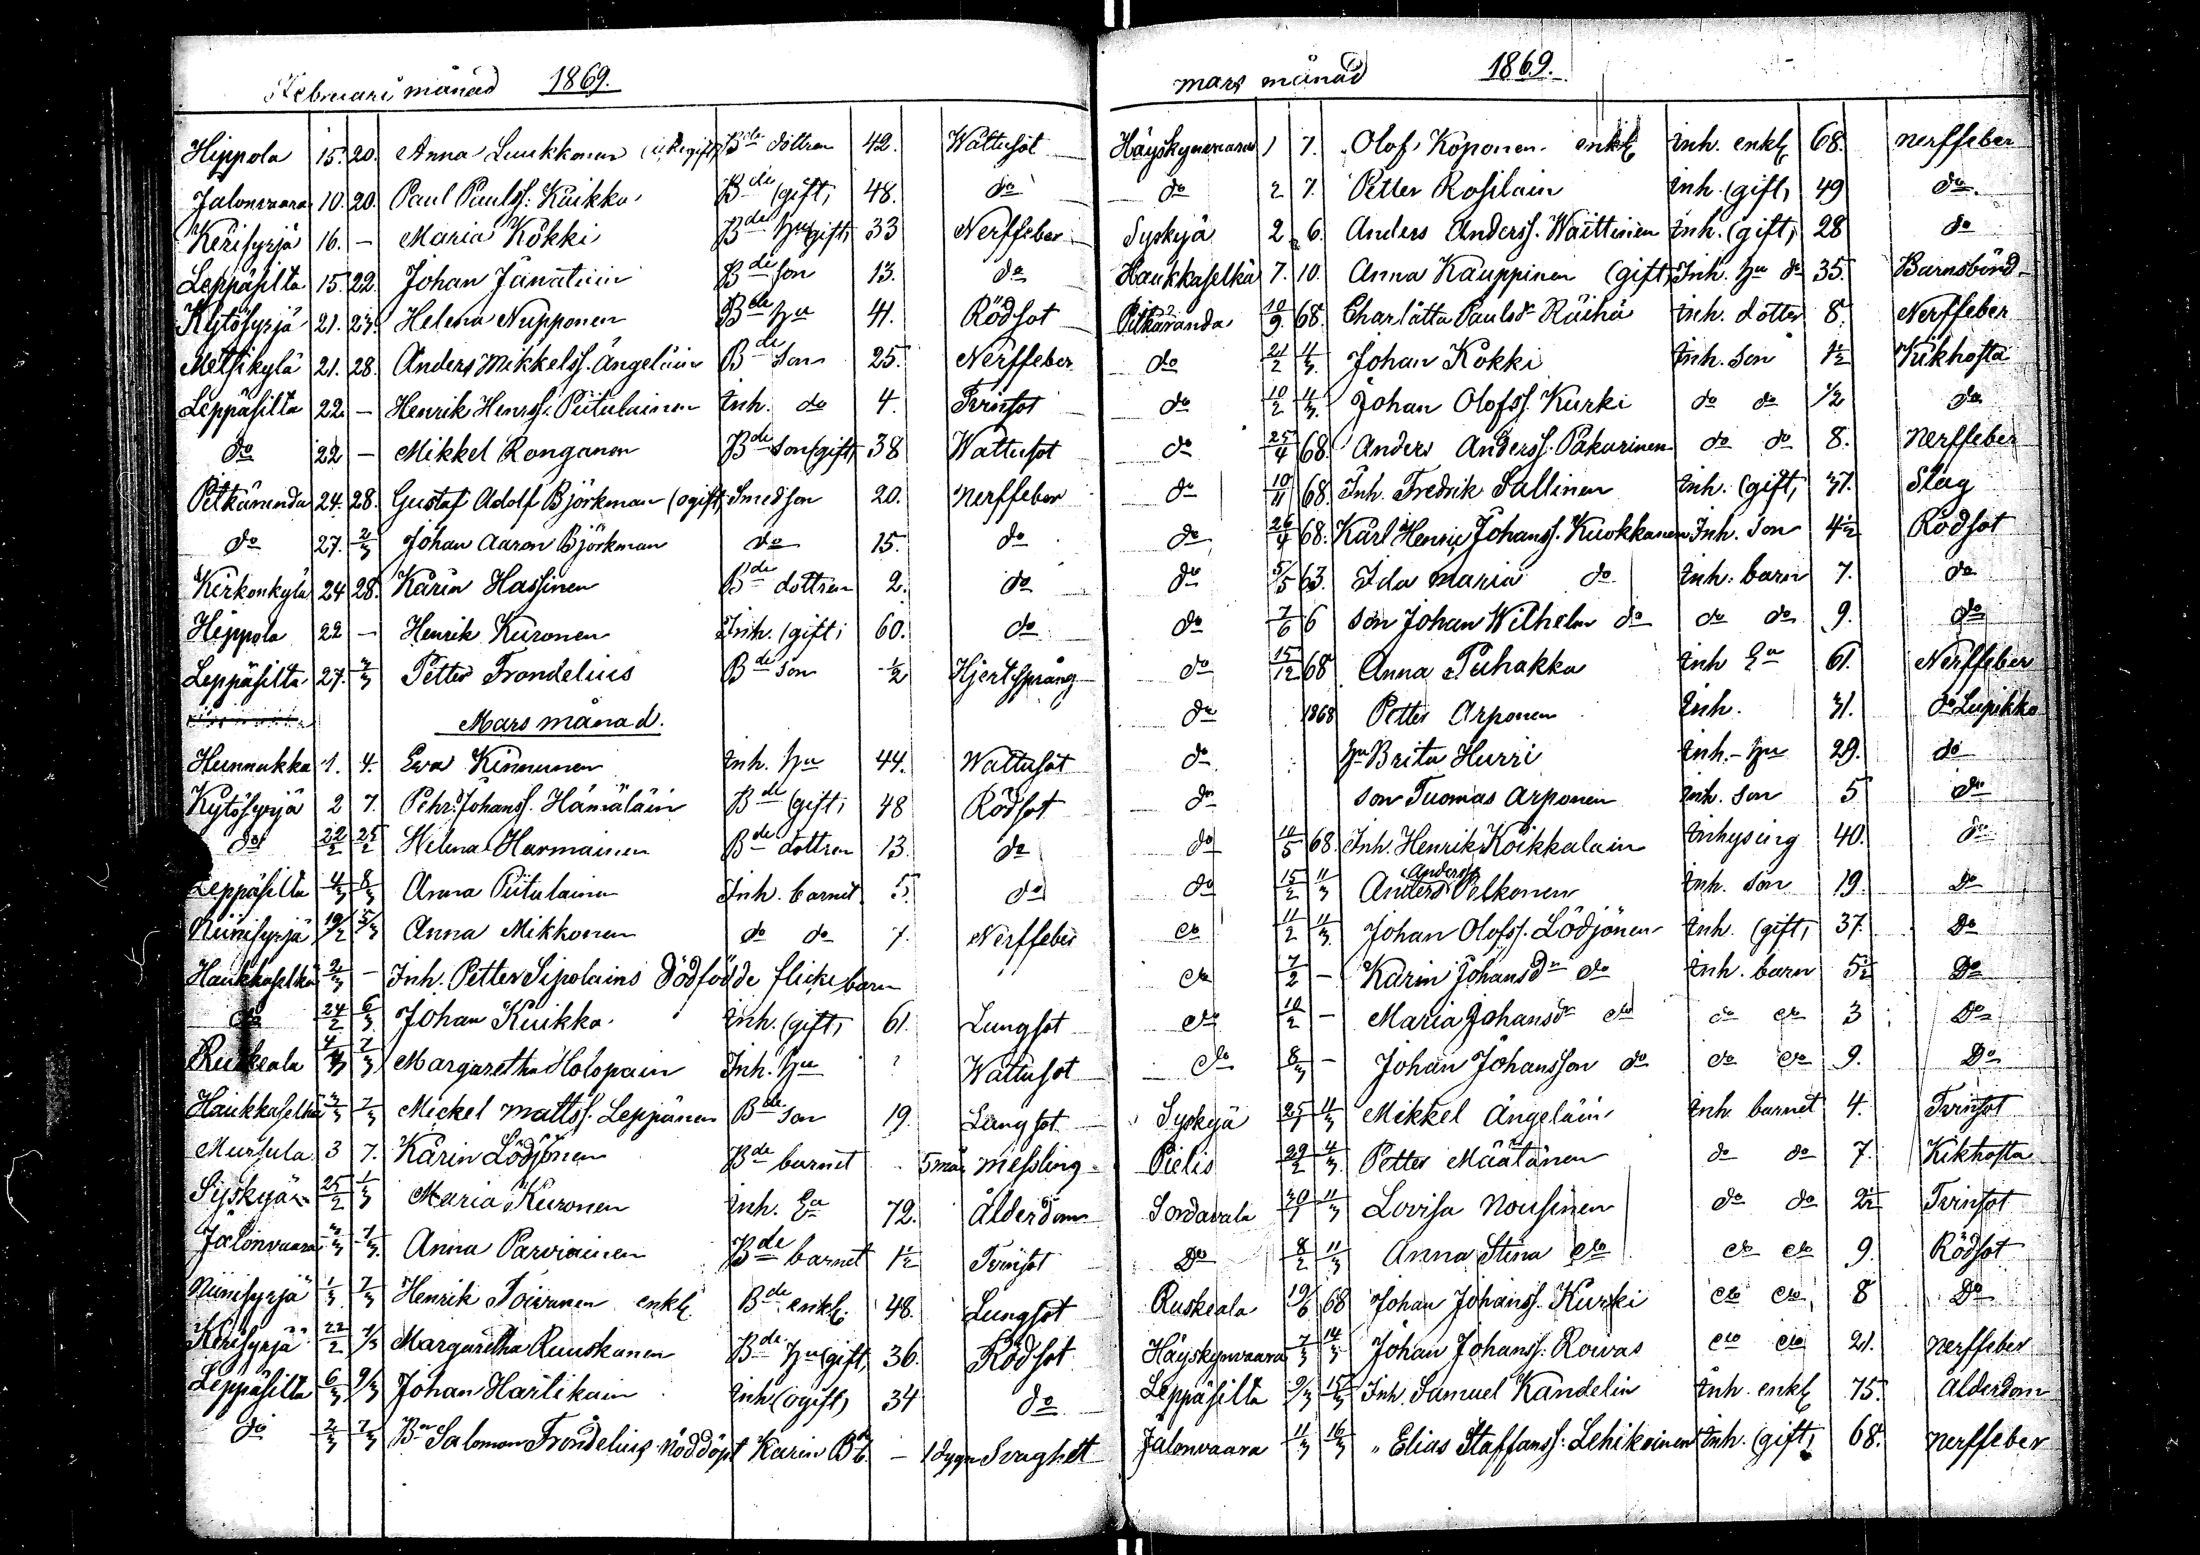 Februari månad 1869.
Hippola 15. 20. Anna Luukkonen (ogift) Bde dottren 42. Wattusot
Jalonvaara 10. 20. Paul Paulss. Kuikka Bde (gift) 48. do
Kerisyrjä 16. — Maria Kokki Bde hu (gift) 33 Nerffeber
Leppäsilta 15. 22. Johan Jänatuin Bde son 13. do
Kytösyrjä 21. 23. Helena Nupponen Bde hu 41. Rödsot
Metsikylä 21. 28. Anders Mikkelss. Ängeläin Bde son 25. Nerffeber
Leppäsilta 22. — Henrik Henrss. Piitulainen Inh. do 4. Tvinsot
do 22 — Mikkel Ronganen Bde son (gift) 38 Wattusot
Pitkäranda 24. 28. Gustaf Adolf Björkman (ogift) Smedson 20. Nerffeber
do 27. 2/3 Johan Aaron Björkman do 15. do
Kirkonkylä 24 28. Karin Hassinen Bde dottren 2. do
Hippola 22 — Henrik Kuronen Inh. (gift) 60. do
Leppäsilta 27. 2/3 Petter Frondelius Bde son 1/2 Hjertsprång
Mars månad.
Hunnukka 1. 4. Eva Kinnunen Inh. hu 44. Wattusot
Kytösyrjä 2 7. Pehr Johanss. Hämäläin Bde (gift) 48 Rödsot
do 22/2 25/2 Helena Harmainen Bde dottren 13. do
Leppäsilta 4/3 8/3 Anna Piitulainen Inh. barnet 5. do
Niinisyrjä 19/2 5/3 Anna Mikkonen do do 7. Nerffeber
Haukkaselkä 2/3 — Inh. Petter Sipolains dödfödde flickebarn
do 24/2 6/3 Johan Kuikka Inh. (gift) 61. Lungsot
Ruskeala 4/3 7/3 Margaretha Holopain Inh. hu ? Wattusot
Haukkaselkä 7/3 Mickel Mattss. Leppänen Bde son 19. Lungsot
Mursula 3 7. Karin Lödjönen Bde barnet 5 mån Messling
Syskyä 25/2 1/3 Maria Kuronen Inh. Ea 72. Ålderdom
Jalonvaara 7/3 Anna Parviainen Bde barnet 1 1/2 Tvinsot
Niinisyrjä 1/3 7/3 Henrik Toivanen enkl. Bde enkl. 48. Lungsot
Kerisyrjä 22/2 7/3 Margaretha Ruuskanen Bde hu (gift) 36. Rödsot
Leppäsilta 6/3 9/3 Johan Hartikain Inh (ogift) 34 do
do 2/3 7/3 Bn Salomon Frondelius nöddöpt Karin Bdb. — 1 dygn Svaghet
mars månad 1869.
Häyskynvaara 1 7. Olof Koponen enkl Inh. enkl 68. Nerffeber
do 2 7. Petter Rosilain Inh. (gift) 49 do
Syskyä 2 6. Anders Anderss. Waittinen Inh. (gift) 28 do
Haukkaselkä 7. 10. Anna Kauppinen (gift) Inh. hu do 35. Barnsbörd
Pitkäranda 10/9 68. Charlotta Paulsdr Räihä Inh. dotter 8. Nerffeber
do 21/2 11/3 Johan Kokki Inh. son 1 1/2 Kikhosta
do 10/2 11/3 Johan Olofss. Kurki do do 1/2 do
do 25/4 68. Anders Anderss. Pakarinen do do 8. Nerffeber
do 10/11 68. Inh. Fredrik Sallinen Inh. (gift) 37. Slag
do 26/4 68. Karl Henric Johanss. Kuokkanen Inh. son 4 1/2 Rödsot
do 5/5 63. Ida Maria do Inh. barn 7. do
do 7/6 6 son Johan Wilhelm do do do 9. do
do 15/12 68 Anna Puhakka Inh Ea 61. Nerffeber
do 1868 Petter Arponen Inh. 31. do Lupikko
do hu Brita Hurri Inh. hu 29. do
do son Tuomas Arponen Inh. son 5 do
do 10/5 68. Inh. Henrik Koikkalain Inhysing 40. do
do 15/2 11/3 Anders Anderss Pelkonen Inh. son 19. Do
do 11/2 11/3 Johan Olofss. Lödjönen Inh. (gift) 37. Do
do 7/2 — Karin Johansdr do Inh. barn 5 1/2 Do
do 10/2 — Maria Johansdr do do do 3 Do
do 8/3 — Johan Johansson do do do 9. Do
Syskyä 25/1 11/3 Mikkel Ängeläin Inh. barnet 4. Tvinsot
Pielis 29/2 11/3 Petter Määtänen do do 7. Kikhosta
Sordavala 30/1 11/3 Lovisa Nousinen do do 2 1/2 Tvinsot
Do 8/2 11/3 Anna Stina do do do 9. Rödsot
Ruskeala 19/6 68 Johan Johanss. Kurki do do 8 Do
Häyskynvaara 7/3 14/3 Johan Johanss. Rowas do do 21. Nerffeber
Leppäsilta 9/3 15/3 Inh. Samuel Kandelin Inh. enkl 75. Ålderdom
Jalonvaara 11/3 16/3 " Elias Staffanss. Lehikoinen Inh. (gift) 68. Nerffeber